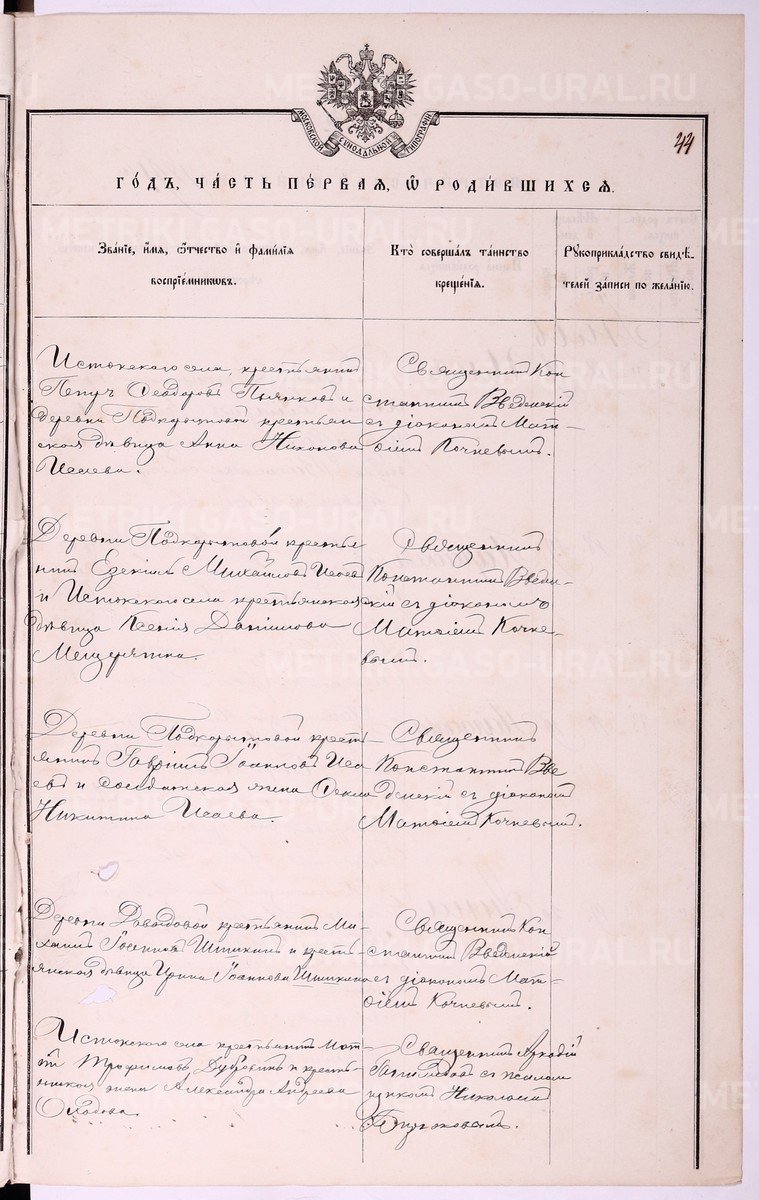 МОСКОВСКОЙ СѴНОДАЛЬНОЙ ТИПОГРАФІИ
44
ГО́ДЪ, ЧА́СТЬ ПЕ́РВАЯ, Ѡ҆ РОДИ́ВШИХСѦ.
ЗВА́НІЕ, И҆́МѦ, Ѻ҆́ТЧЕСТВО И҆ ФАМИ́ЛІѦ
ВОСПРІЕ́МНИКѠВЪ.
КТО̀ СОВЕРША́ЛЪ ТА́ИНСТВО
КРЕЩЕ́НІѦ.
РꙊКОПРИКЛА́ДСТВО СВИДѢ́-
ТЕЛЕЙ ЗА́ПИСИ ПО ЖЕЛА́НІЮ.
Истокскаго села, крестьянинъ
Петръ Ѳеодоровъ и
деревни Подкорытовой крестьян
ская дѣвица Анна Никонова
Исаева.
Священникъ Кон
стантинъ Введенскій
съ діакономъ Мат-
ѳіемъ Кочневымъ.
Деревни Подкорытовой крестья
нинъ Езекіилъ Михайловъ Исаевъ
и Истокскаго села крестьянская
дѣвица Ксенія Данилова
Мещерягина.
Священникъ
Константинъ Введен-
скій съ діакономъ
Матѳіемъ Кочне-
вымъ.
Деревни Подкорытовой крест-
янинъ Гавріилъ Іоанновъ Иса
евъ и солдатская жена Ѳекла
Никитина Исаева.
Священникъ
Константинъ Вве
денскій съ діакономъ
Матѳіемъ Кочневымъ.
Деревни Давыдовой крестьянинъ Ми-
хаилъ Іоанновъ Шишкинъ и кресть-
янская дѣвица Ирина Іоаннова Шишкина
Священникъ Кон
стантинъ Введенскій
съ діакономъ Мат-
ѳіемъ Кочневымъ.
Истокскаго села крестьянинъ Мат-
ѳій Трофимовъ Дубровинъ и кресть-
янская жена Александра Андреева
Священникъ Аркадій
съ псалом
щикомъ Николаемъ
Бирюковымъ.
METRIKI.GASO-URAL.RU